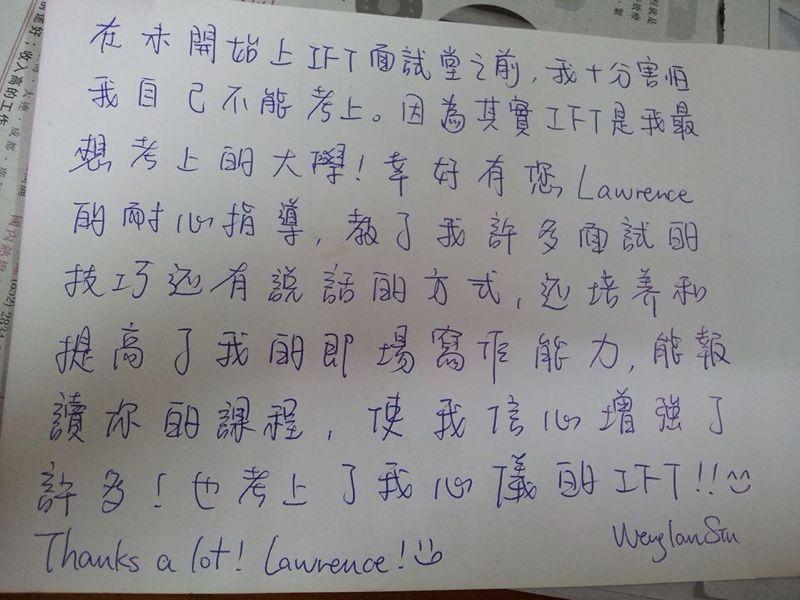 在未開始上IFT面試堂之前，我十分害怕
我自己不能考上。因為其實IFT是我最
想考上的大學！幸好有您Lawrence
的耐心指導，教了我許多面試的
技巧还有説話的方式，还培养和
提高了我的即場寫作能力，能報
讀你的課程，使我信心增強了
許多！也考上了我心儀的IFT!!
Thanks a lot! Lawrence!
收入高的工作